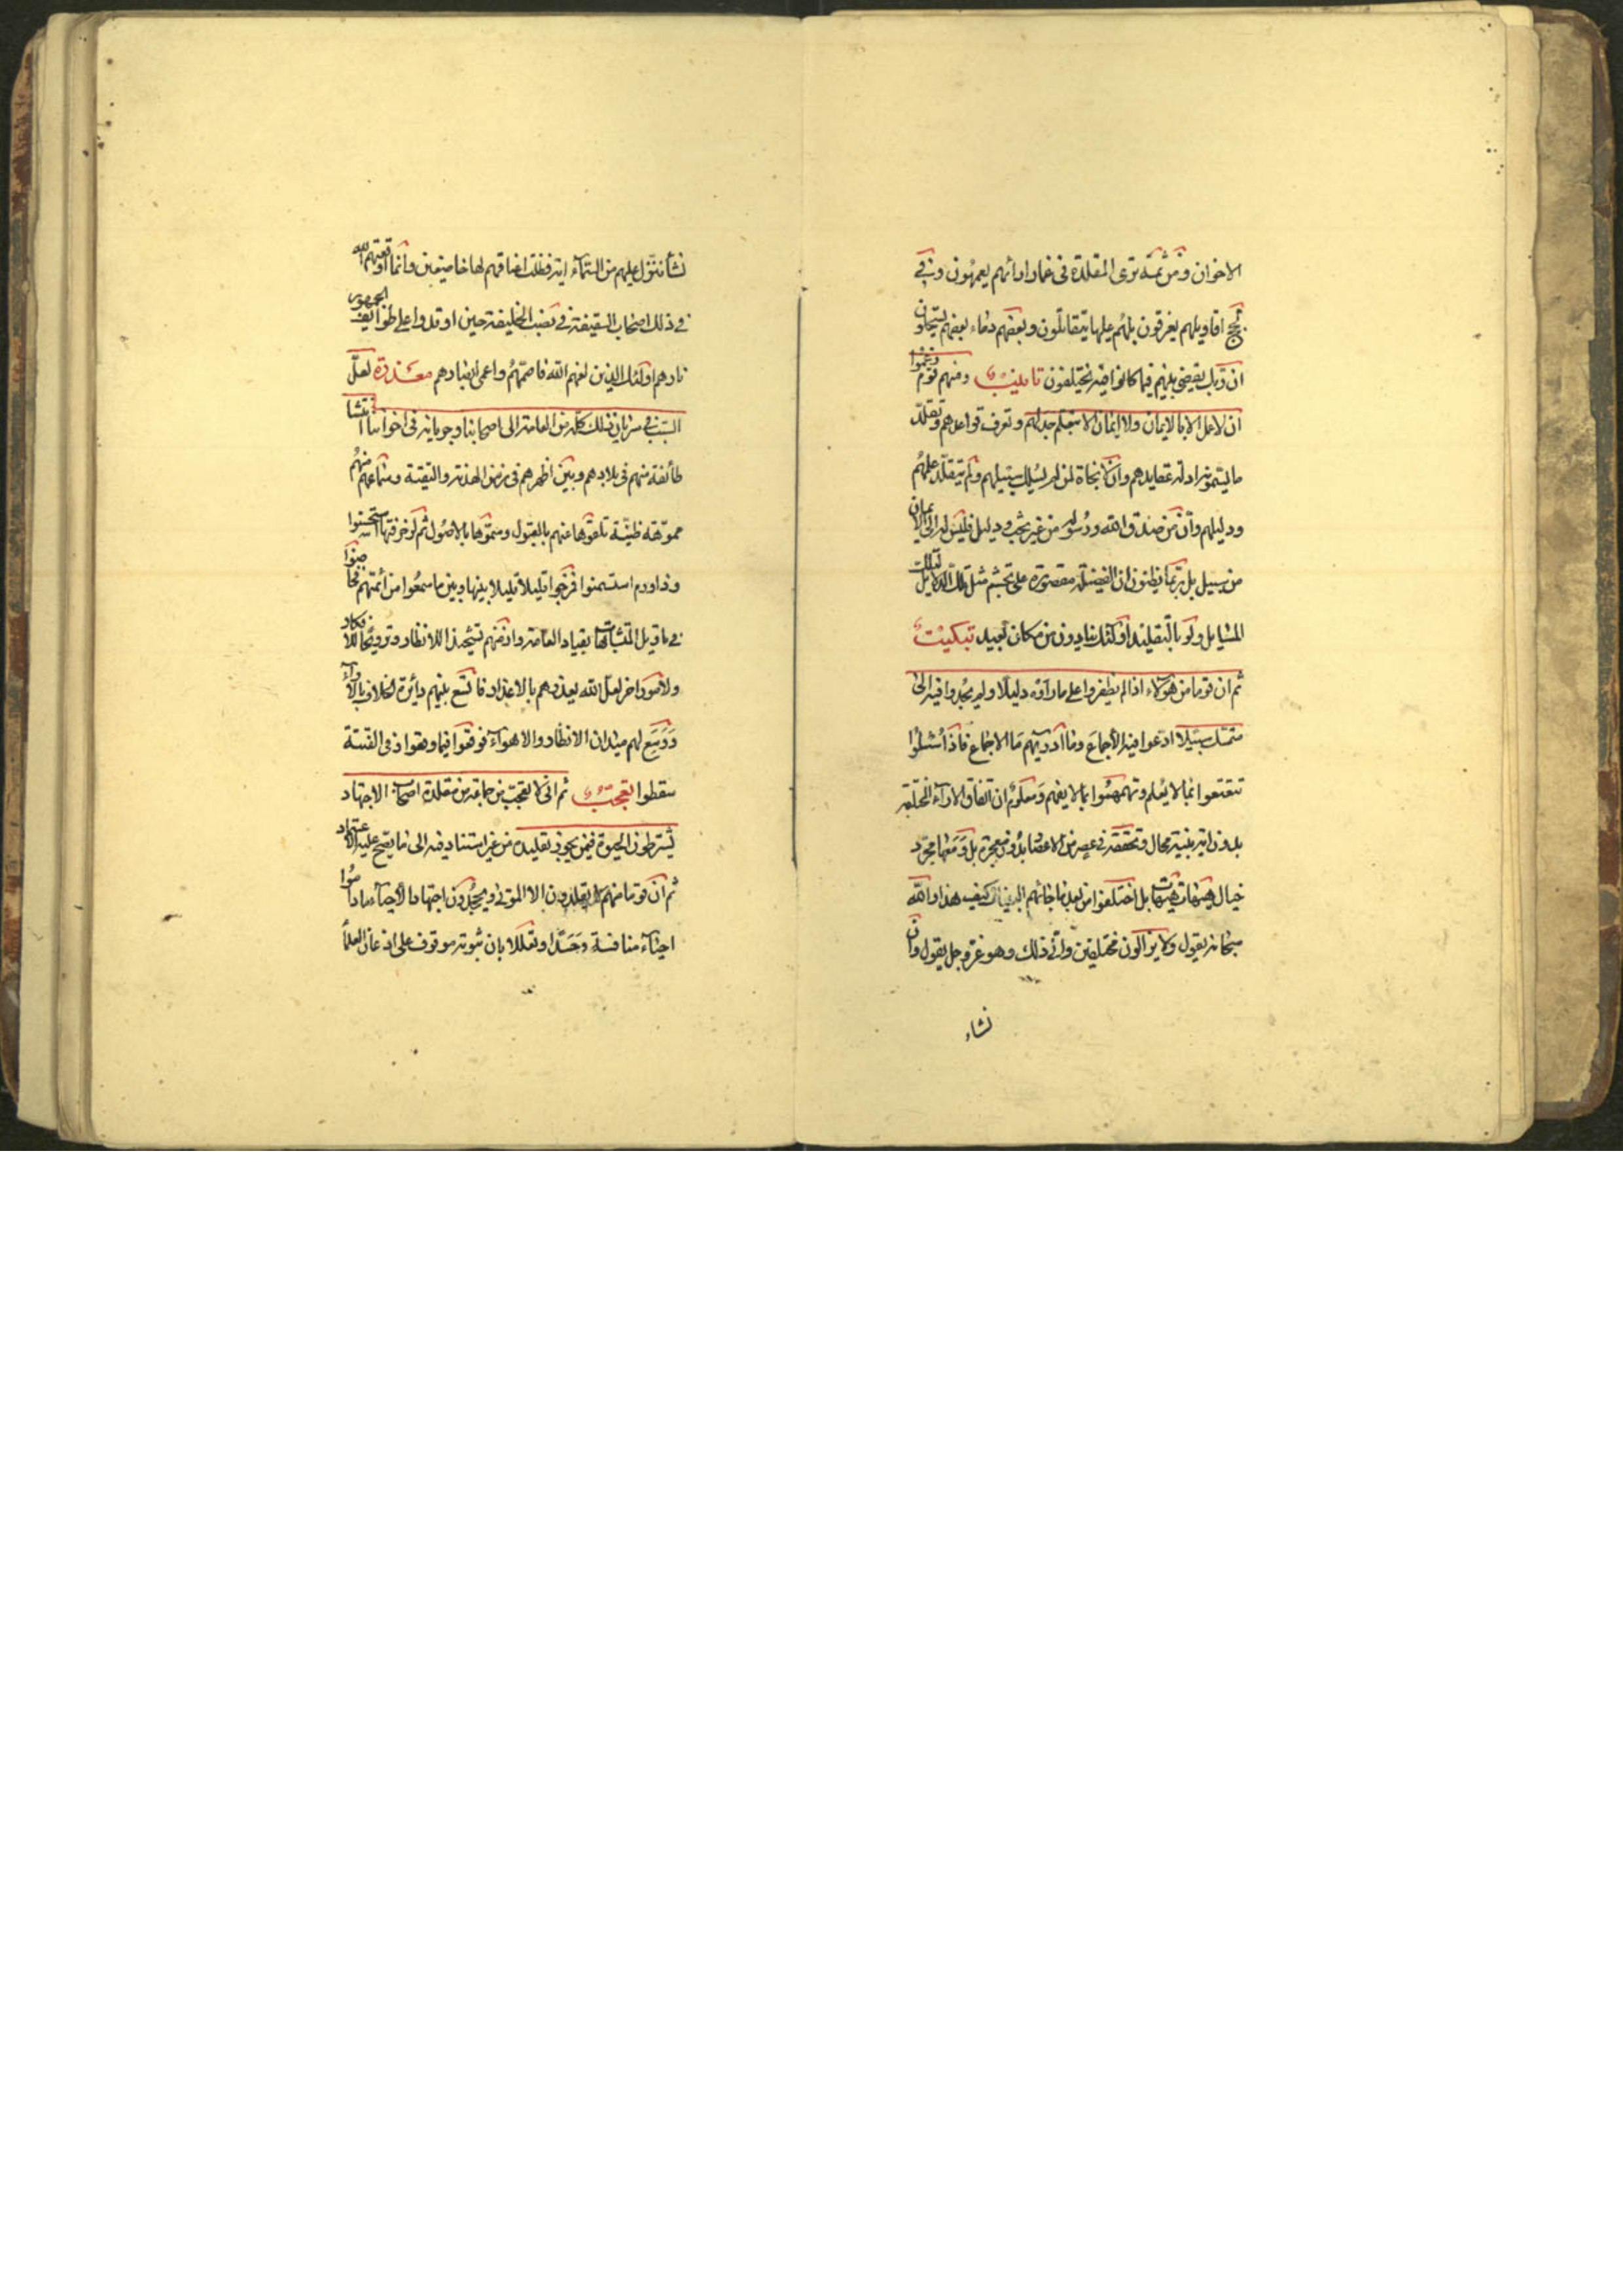 الاخوان ومن ثمة ترى المقلدة فى غمار ارائهم يعمهون وفى
لجج اقاويلهم يغرقون بلهم عليها يتقاتلون وبعضهم دماء بعضهم يستحلون
ان ربك يقضى بينهم فيما كانوا فيه يختلفون تانيب ومنهم قوم زعموا
ان لا عمل الا بالايمان ولا ايمان الا بتعلم جدلهم وتعرف قواعدهم وتقلد
ما يسمونه ادلة عقايدهم وان لا نجاة لمن لم يسلك سبيلهم ولم يتقلد علمهم
ودليلهم وان من صدق الله ورسوله من غير بحث ودليل فليس له الى الايمان
من سبيل بل ربما يظنون ان الفضيلة مقصورة على تجشم مثل تلك الدلايل لتلك
المسايل ولو بالتقليد اولئك ينادون من مكان بعيد تبكيت
ثم ان قوما من هؤلاء اذا لم يظفروا على ما راوه دليلا ولم يجدوا فيه الى
متمسك سبيلا ادعوا فيه الاجماع وما ادريهم ما الاجماع فاذا سئلوا
تقعقعوا بما لا يعلم وتهمهموا بما لا يفهم ومعلوم ان اتفاق الاراء المختلفة
بدون اية بينة محال وتحققه فى عصر من الاعصار بدون معجزة بل ومعها مجرد
خيال هيهات هيهات بل اختلفوا من بعد ما جائهم البينات كيف هذا والله
سبحانه يقول ولا يزالون مختلفين وانى ذلك وهو عز وجل يقول وان
نشاء
نشأ ننزل عليهم من السماء اية فظلت اعناقهم لها خاضعين وانما اوقعهم الله
فى ذلك اصحاب السقيفة فى نصب الخليفة حين اوقدوا على طوايف الجمهور
نارهم اولئك الذين لعنهم الله فاصمهم واعمى ابصارهم معذرة لعل
السبب فى سريان ذلك كله من العامة الى اصحابنا وجريانه فى اخواننا انتشا
طائفة منهم فى بلادهم وبين اظهرهم فى زمن الهدنة والتقية وسماعهم منهم
مموهة ظنية تلقوها عنهم بالقبول وسموها بالاصول ثم لزخرفتها استحسنوا
وذا ورم استسمنوا فمزجوا قليلا قليلا بينها وبين ما سمعوا من ائمتهم فخاضوا
فى تاويل المتشابهات بقياد العامة واذ منهم تشحيذا للانظار وترويجا للافكار
ولامور اخر لعل الله يعذرهم بالاعذار فاتسع بينهم دائرة الخلاف بالاراء
ووسع لهم ميدان الانظار والاهواء فوقعوا فيما وقعوا فى الفتنة
سقطوا تعجب ثم انى لاتعجب من جماعة من مقلدة اصحاب الاجتهاد
يشترطون الحيوة فيمن يجوز تقليده من غير استناد فيه الى ما يصح عليه الاعتماد
ثم ان قوما منهم لا يقلدون الا الموتى ويجحدون اجتهاد الاحياء ماداموا
احياء منافسة وحسدا وتعللا بان ثبوته موقوف على اذعان العلما